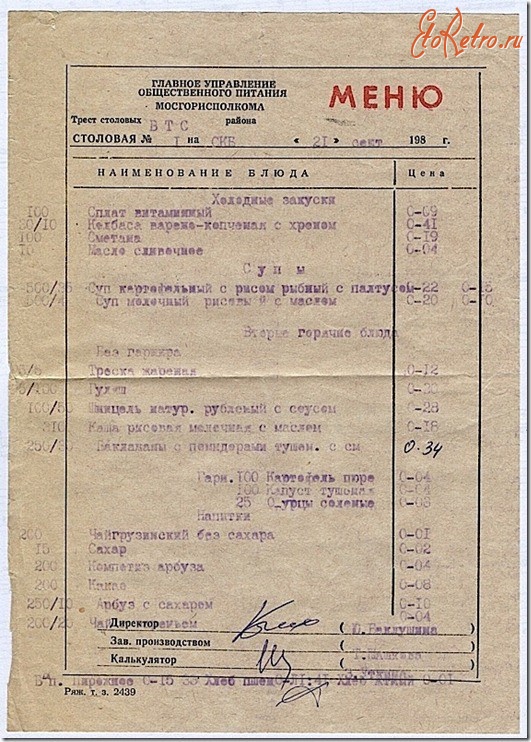 EtoRetro.ru
ГЛАВНОЕ УПРАВЛЕНИЕ
ОБЩЕСТВЕННОГО ПИТАНИЯ
МОСГОРИСПОЛКОМА
МЕНЮ
Трест столовых БТС района
СТОЛОВАЯ № I на СКБ « 21 сент 198 г.
НАИМЕНОВАНИЕ БЛЮДА Цена
Холодные закуски
100 Салат витаминный 0-09
30/10 Колбаса варено-копченая с хреном 0-41
100 Сметана 0-19
10 Масло сливочное 0-04
Супы
500/35 Суп картофельный с рисом рыбный с палтусом 0-22
Суп молочный рисовый с маслом 0-20 0-10
Вторые горячие блюда
Без гарнира
Треска жареная 0-12
Гуляш
100/50 Шницель натур. рубленый с соусом 0-28
310 Каша рисовая молочная с маслом 0-18
250/30 Баклажаны с помидорами тушен. с см 0-34
Гарн. 100 Картофель пюре 0-04
100 Капуст тушеная 0-04
25 О урцы соленые 0-03
Напитки
200 Чайгрузинский без сахара 0-01
15 Сахар 0-02
200 Компотиз арбуза 0-04
200 Какао 0-08
250/10 Арбуз с сахаром 0-10
200/20 Чай 0-04
Директор
Зав. производством
Калькулятор
Б п. Пирожное 0-15 33 Хлеб пшен
Ряж. т. з. 2439